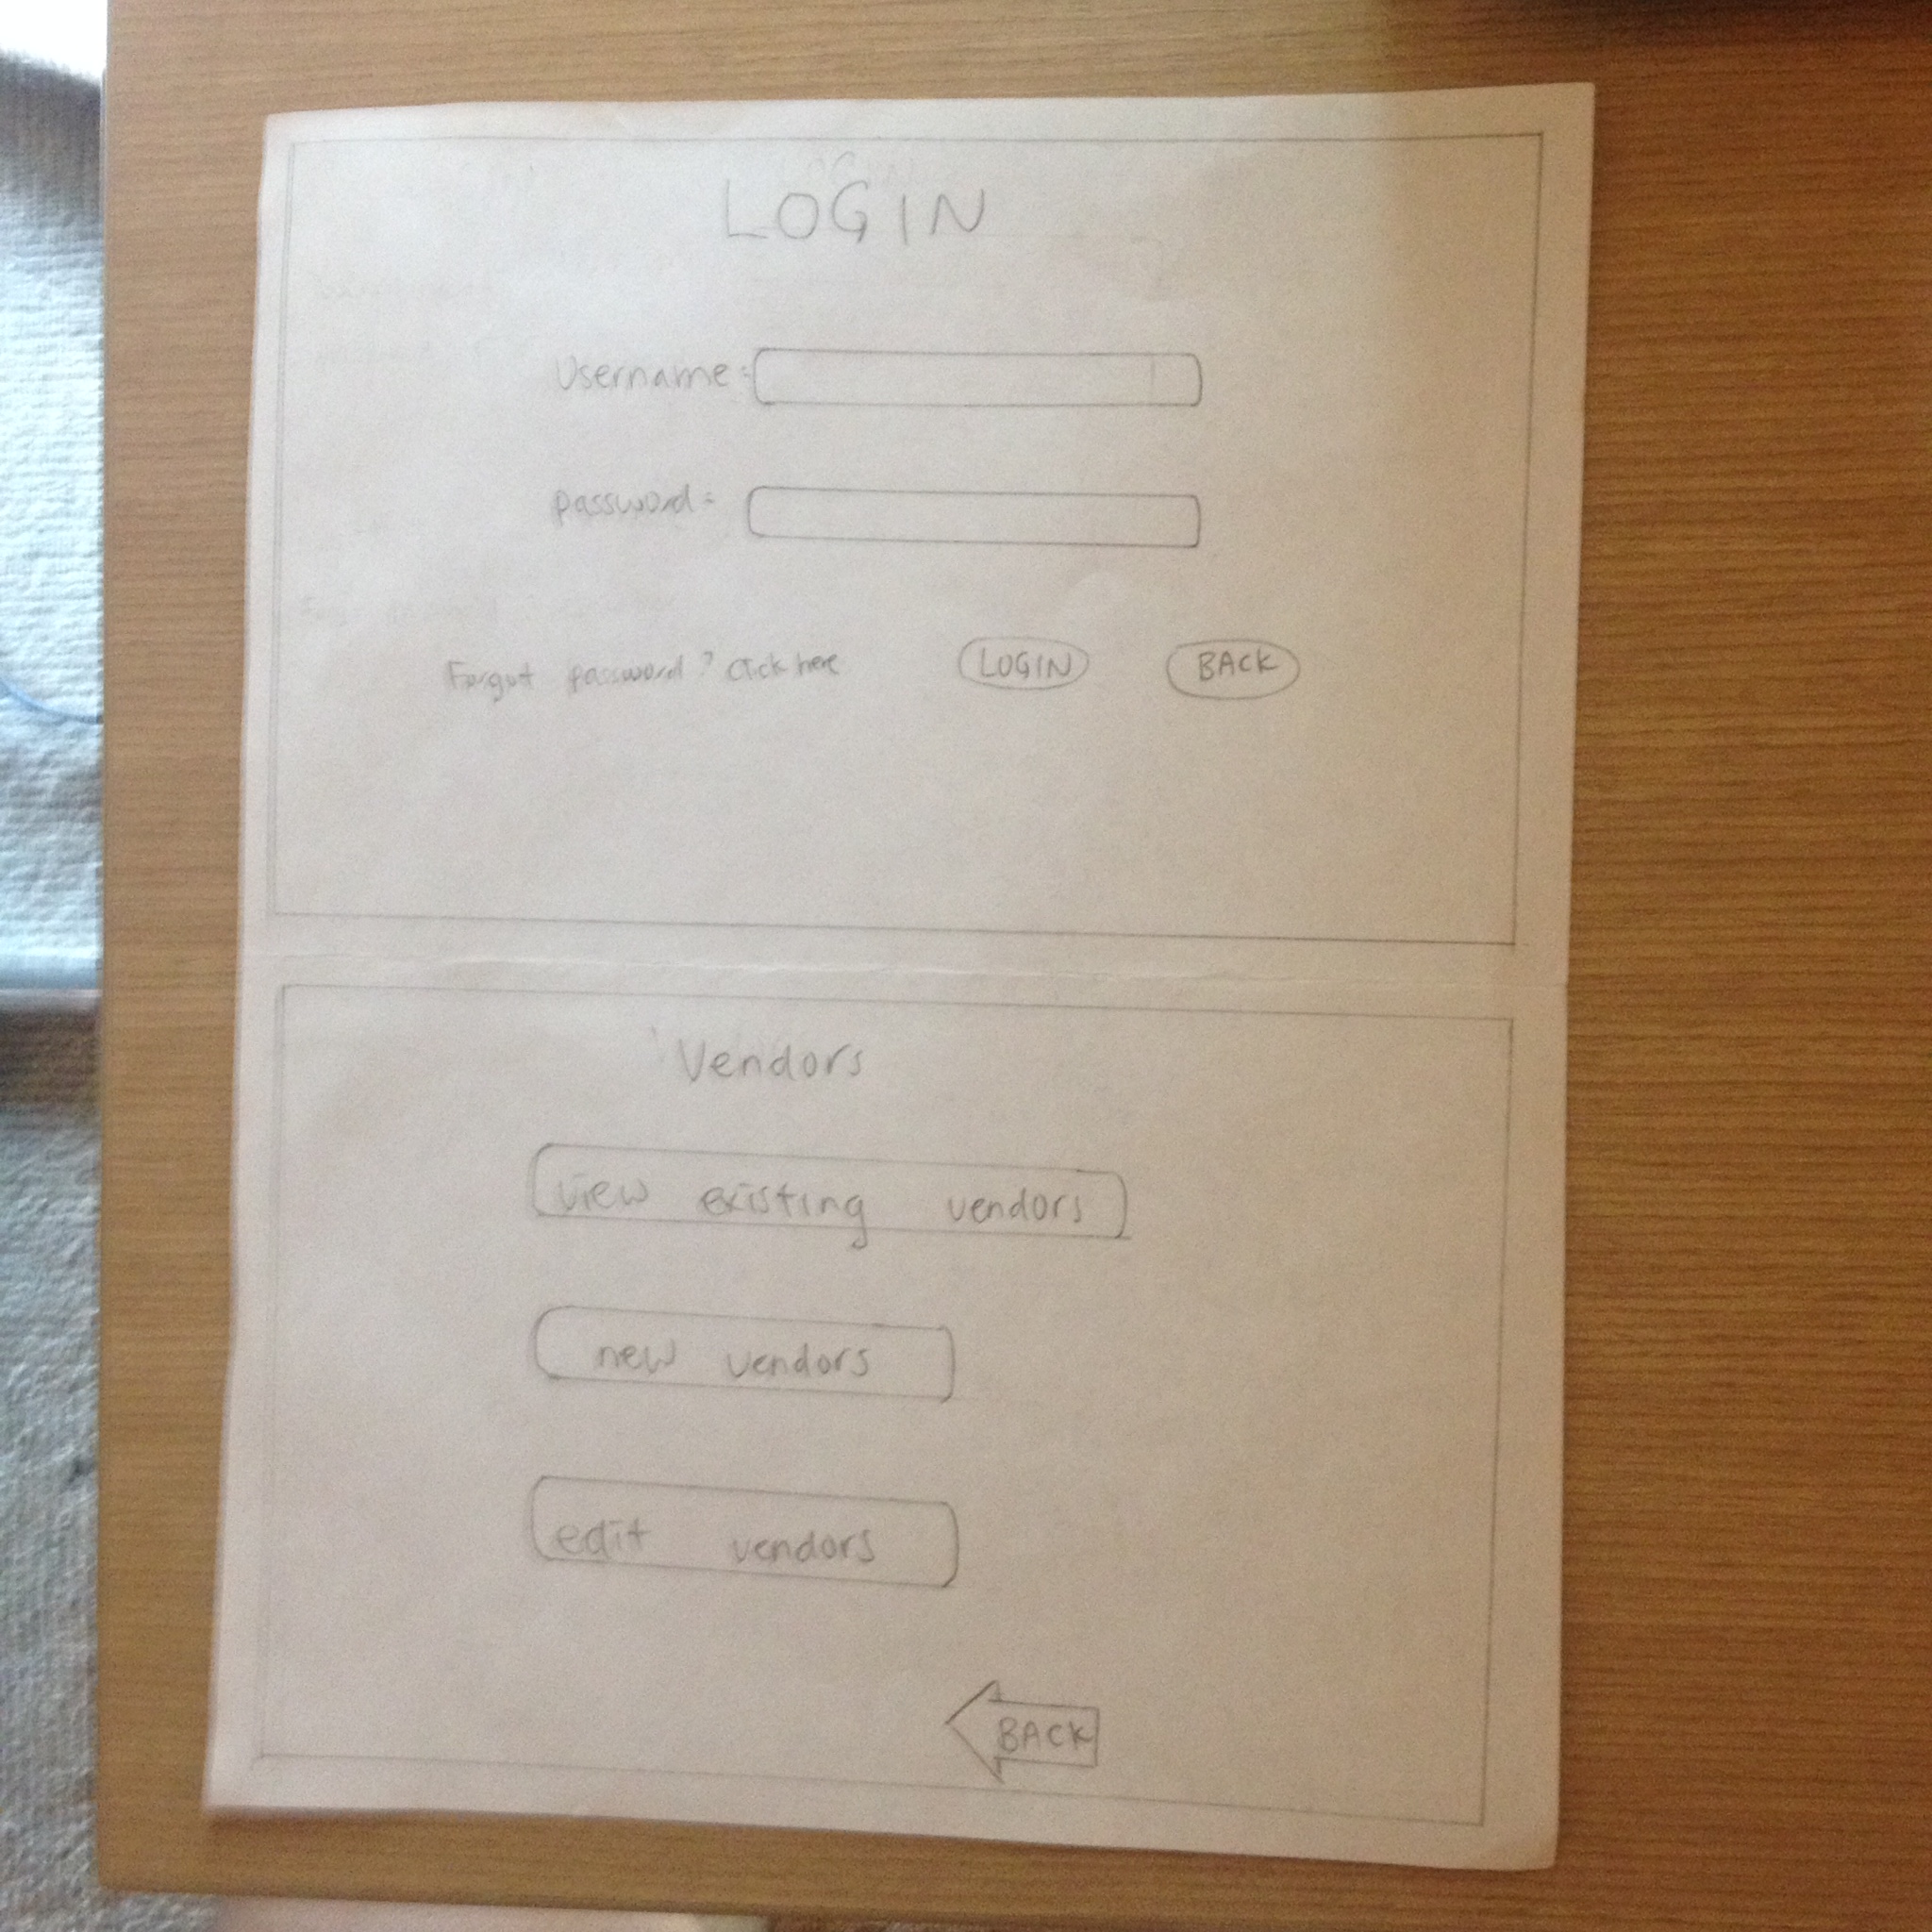 LOGIN
Username:
password:
Forgot password? Click here LOGIN BACK
Vendors
view existing vendors
new vendors
edit vendors
BACK